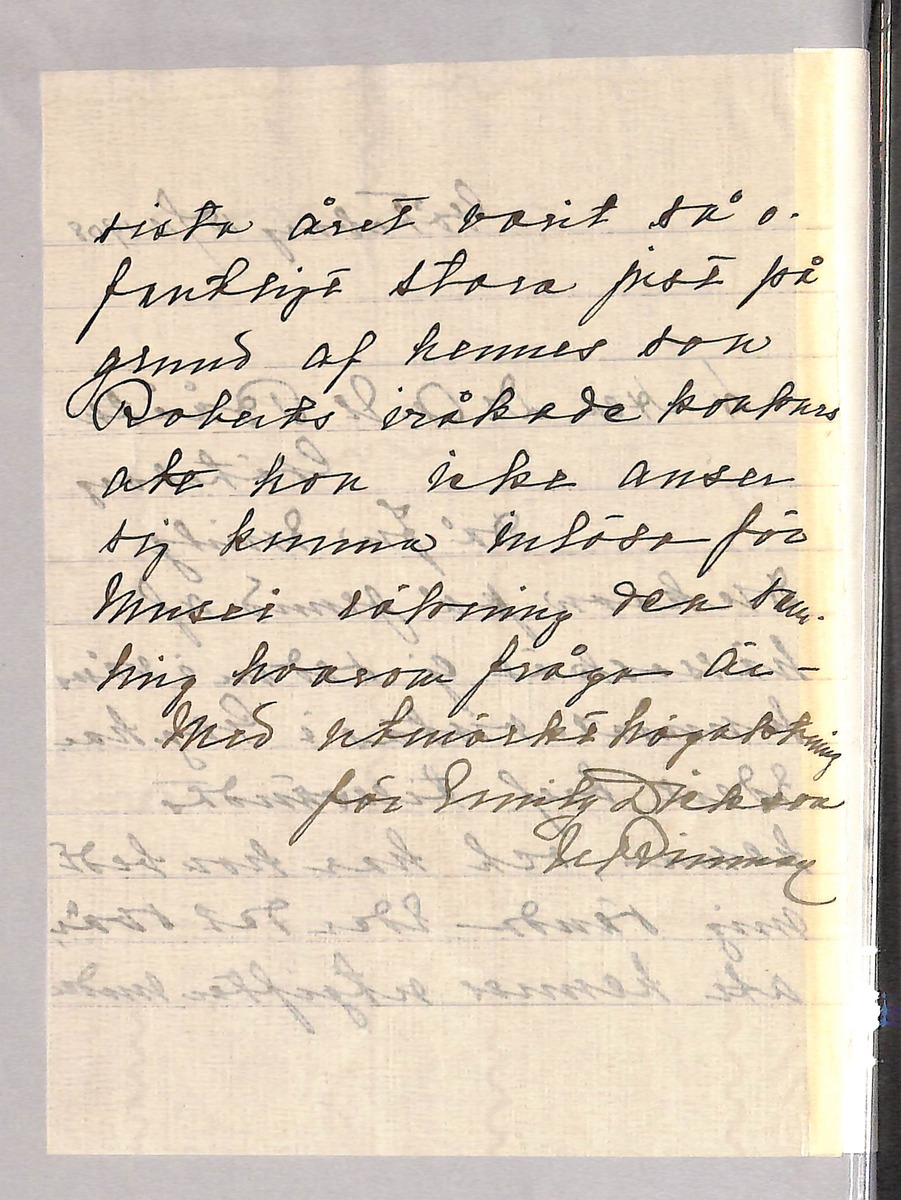 sista året varit så o-
fantligt stora just på
grund af hennes son
Roberts iråkade konkurs
att hon icke anser
sig kunna inlösa för
Musei räkning den sam-
ling hvarom fråga är –
Med utmärkt högaktning
för Emily Dickson